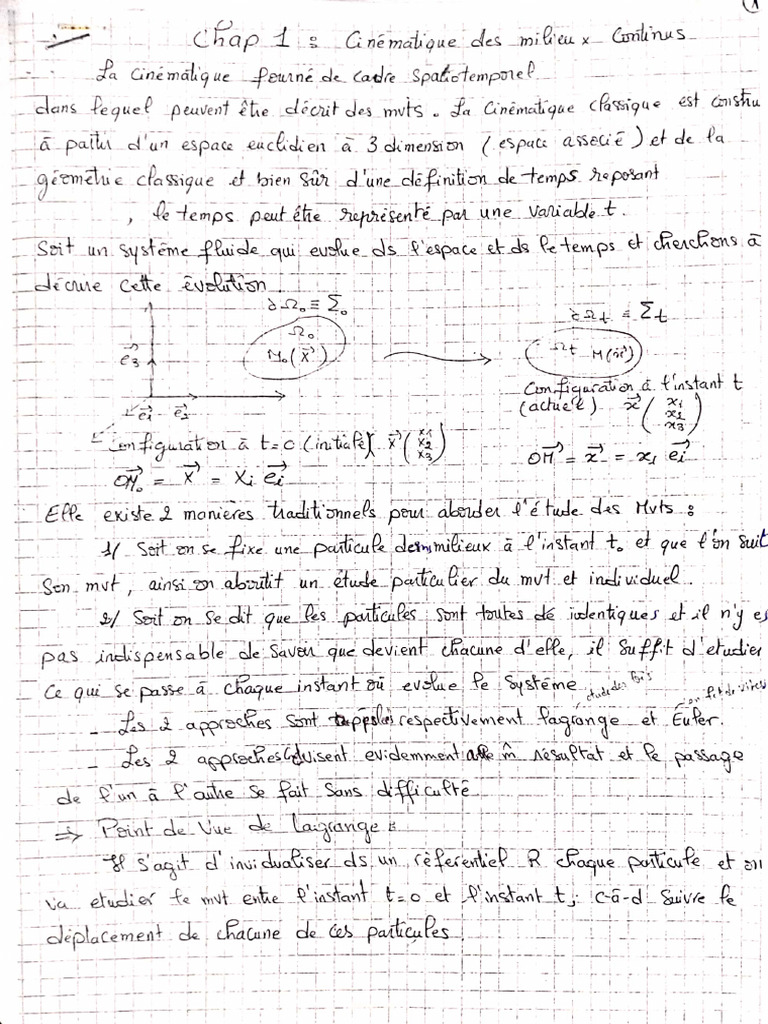 1
Chap 1 : Cinématique des milieux Continus
La Cinématique fourné de cadre spatiotemporel
dans lequel peuvent être décrit des mvts. La Cinématique classique est constru
à partir d'un espace euclidien à 3 dimension (espace associé) et de la
géométrie classique et bien sûr d'une définition de temps reposant
, le temps peut être représenté par une variable t.
Soit un système fluide qui evolue ds l'espace et ds le temps et cherchons à
décrire cette évolution.
∂Ω₀ ≡ Σ₀
∂Ωt ≡ Σt
Ω₀
M₀(X⃗)
Ωt M(x⃗)
e⃗3
e⃗1 e⃗2
Configuration à l'instant t
(actuel) x⃗ (x1 x2 x3)
Configuration à t=0 (initiale) X⃗ (X1 X2 X3)
OM⃗₀ = X⃗ = Xi e⃗i
OM⃗ = x⃗ = xi e⃗i
Elle existe 2 manières traditionnels pour aborder l'étude des Mvts :
1/ Soit on se fixe une particule dans milieux à l'instant t₀ et que l'on suit
Son mvt, ainsi on aboutit un étude particulier du mvt et individuel.
2/ Soit on se dit que les particules sont toutes de identiques et il n'y es
pas indispensable de savoir que devient chacune d'elle, il suffit d'etudier
Ce qui se passe à chaque instant où evolue le système
- Les 2 approches sont appelés respectivement lagrange et Euler.
- Les 2 approches Cdvisent evidemment au m̂ résultat et le passage
de l'un à l'autre se fait sans difficulté
⇒ Point de Vue de Lagrange :
Il s'agit d'invidualiser ds un réferentiel R chaque particule et on
va etudier le mvt entre l'instant t=0 et l'instant t, c-à-d suivre le
déplacement de chacune de ces particules.